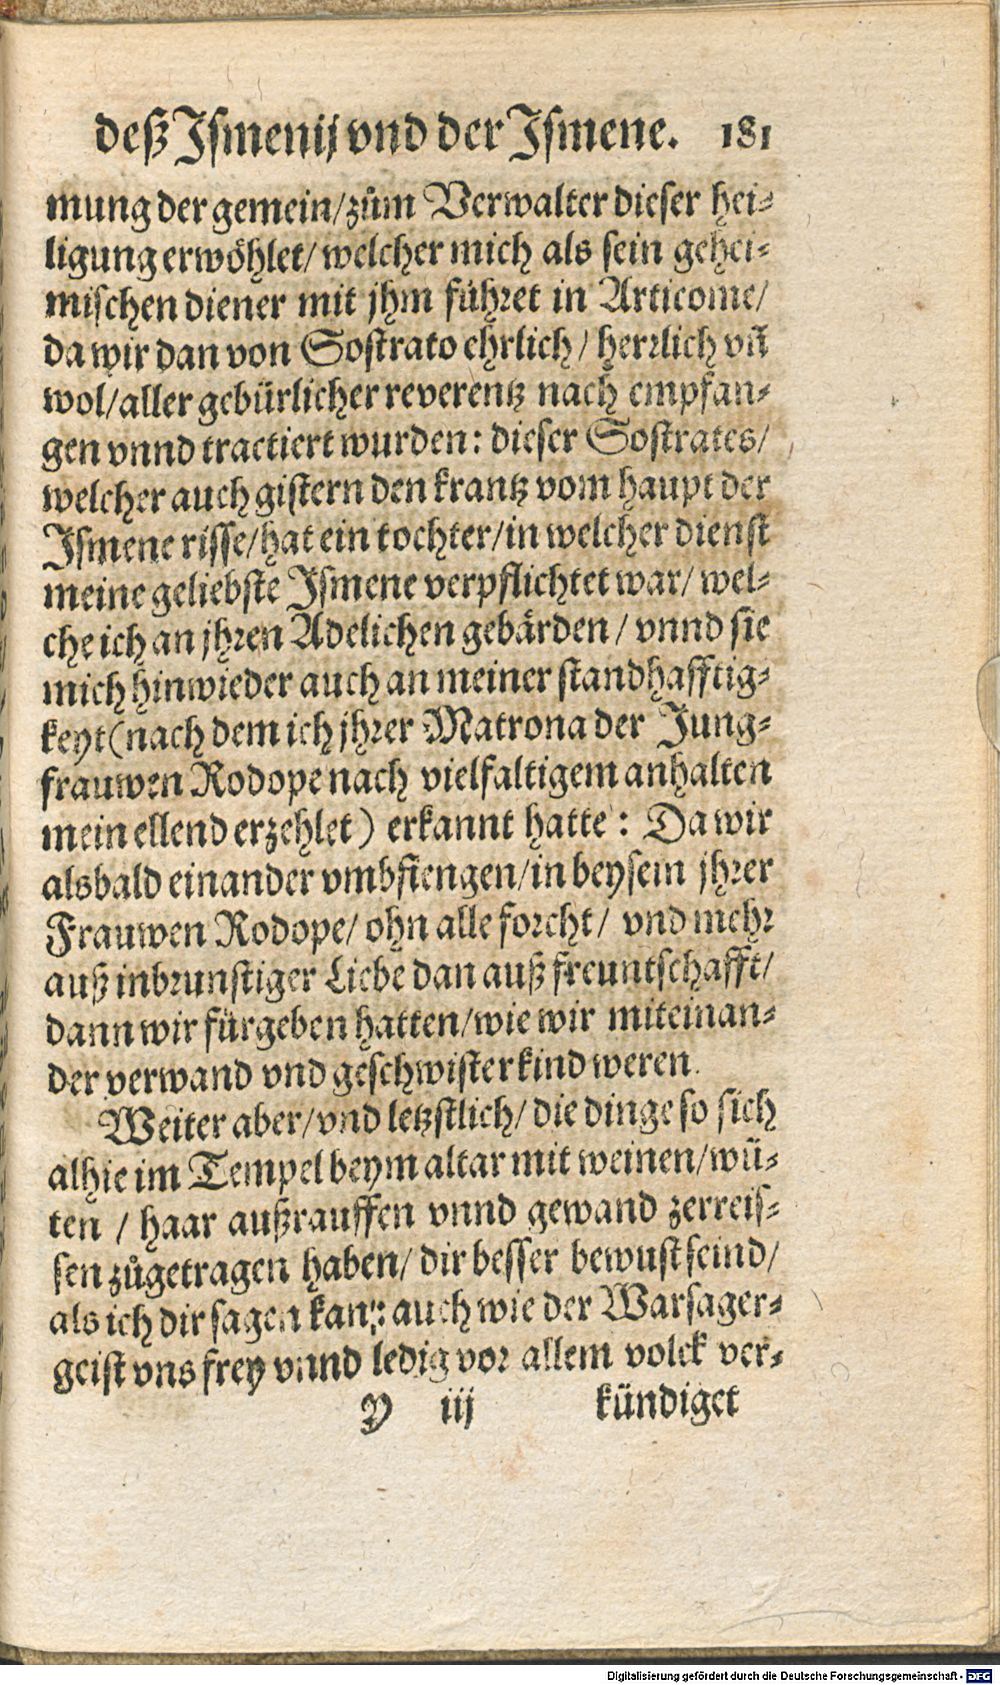 deß Ismenij vnd der Ismene. 181
mung der gemein/zům Verwalter dieser hei⸗
ligung erwöhlet/ welcher mich als sein gehei⸗
mischen diener mit jhm führet in Articome/
da wir dan von Sostrato ehrlich/ herrlich vñ
wol/aller gebürlicher reverentz nach empfan⸗
gen vnnd tractiert wurden: dieser Sostrates/
welcher auch gistern den krantz vom haupt der
Ismene risse/hat ein tochter/in welcher dienst
meine geliebste Ismene verpflichtet war/ wel⸗
che ich an jhren Adelichen gebärden/ vnnd sie
mich hinwieder auch an meiner standhafftig⸗
keyt(nach dem ich jhrer Matrona der Jung⸗
frauwen Rodope nach vielfaltigem anhalten
mein ellend erzehlet) erkannt hatte: Da wir
alsbald einander vmbfiengen/in beysein jhrer
Frauwen Rodope/ ohn alle forcht/ vnd mehr
auß inbrunstiger Liebe dan auß freuntschafft/
dann wir fürgeben hatten/wie wir miteinan⸗
der verwand vnd geschwisterkind weren.
Weiter aber/vnd letzstlich/ die dinge so sich
alhie im Tempel beym altar mit weinen/wü⸗
ten / haar außrauffen vnnd gewand zerreis⸗
sen zůgetragen haben/ dir besser bewust seind/
als ich dir sagen kan: auch wie der Warsager⸗
geist vns frey vnnd ledig vor allem volck ver⸗
Y iij kündiget
Digitalisierung gefördert durch die Deutsche Forschungsgemeinschaft - DFG